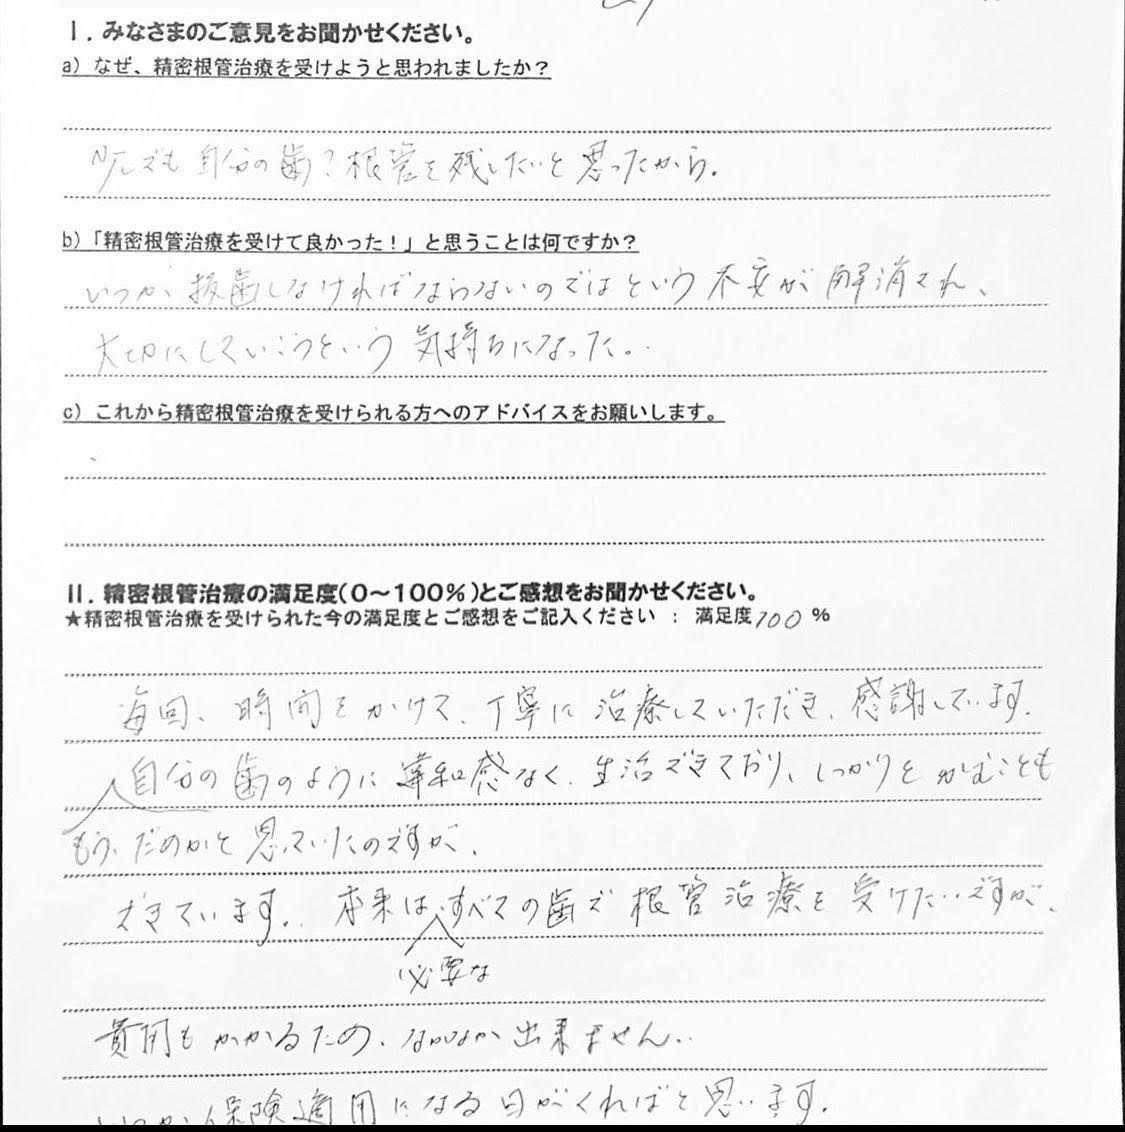 Ⅰ. みなさまのご意見をお聞かせください。
a) なぜ、精密根管治療を受けようと思われましたか？
少しでも自分の歯？根管を残したいと思ったから.
b)「精密根管治療を受けて良かった！」と思うことは何ですか？
いつか、抜歯しなければならないのではという不安が解消され、
大切にしていこうという気持ちになった。
c) これから精密根管治療を受けられる方へのアドバイスをお願いします。
Ⅱ. 精密根管治療の満足度(0～100%)とご感想をお聞かせください。
★精密根管治療を受けられた今の満足度とご感想をご記入ください ： 満足度 100 %
毎回、時間をかけて、丁寧に治療していただき、感謝しています.
自分の歯のように違和感なく、生活できており、しっかりとかむことも
もう、だめかと思っていたのですが、
できています. 本来は、すべての歯で根管治療を受けたいですが、
必要な
費用もかかるため、なかなか出来ません.
いつか、保険適用になる日がくればと思います.